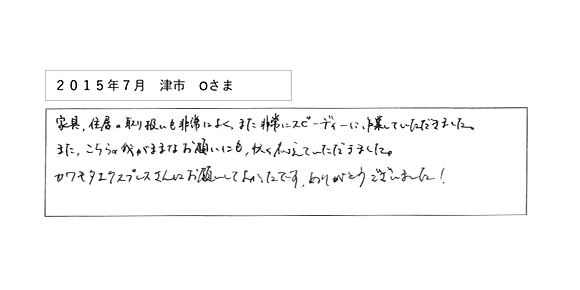 2015年7月 津市 Oさま
家具、住居の取り扱いも非常によく、また非常にスピーディーに、作業していただきました。
また、こちらの我がままなお願いにも、快く応えていただきました。
カワキタエクスプレスさんにお願いしてよかったです。ありがとうございました!